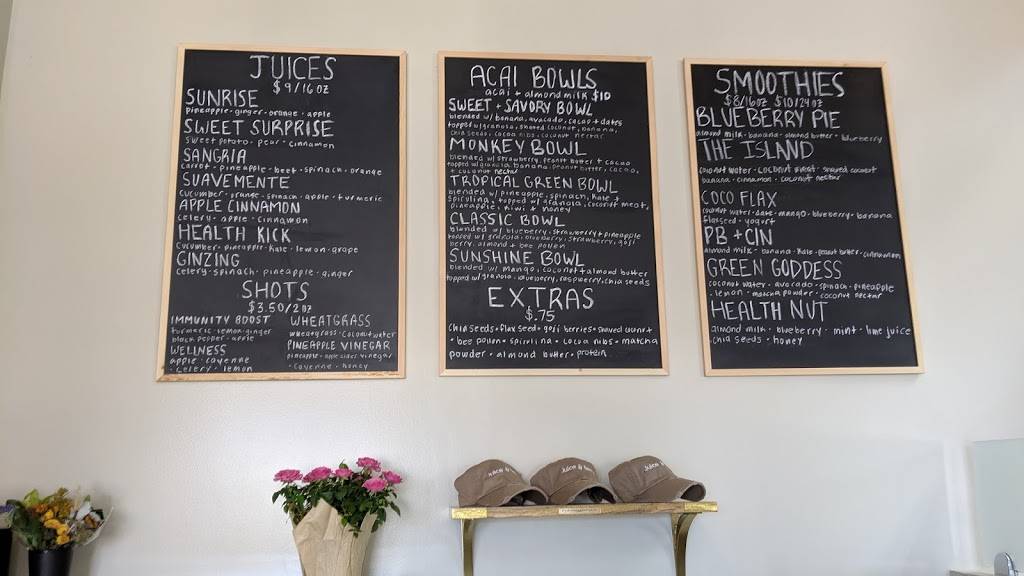 JUICES
$9/16 OZ
SUNRISE
pineapple · ginger · orange · apple
SWEET SURPRISE
sweet potato · pear · cinnamon
SANGRIA
carrot · pineapple · beet · spinach · orange
SUAVEMENTE
cucumber · orange · spinach · apple · turmeric
APPLE CINNAMON
celery · apple · cinnamon
HEALTH KICK
cucumber · pineapple · kale · lemon · grape
GINZING
celery · spinach · pineapple · ginger
SHOTS
$3.50/2 OZ
IMMUNITY BOOST
turmeric · lemon · ginger
black pepper · apple
WELLNESS
apple · cayenne
· celery · lemon
WHEATGRASS
wheatgrass · coconut water
PINEAPPLE VINEGAR
pineapple · apple cider vinegar
· cayenne · honey
ACAI BOWLS
acai + almond milk $10
SWEET + SAVORY BOWL
blended w/ banana, avocado, cacao + dates
topped w/ granola, shaved coconut, banana,
chia seeds, cocoa nibs, coconut nectar
MONKEY BOWL
blended w/ strawberry, peanut butter + cacao
topped w/ granola, banana, peanut butter, cacao,
+ coconut nectar
TROPICAL GREEN BOWL
blended w/ pineapple, spinach, kale +
spirulina, topped w/ granola, coconut meat,
pineapple, kiwi + honey
CLASSIC BOWL
blended w/ blueberry, strawberry + pineapple
topped w/ granola, blueberry, strawberry, goji
berry, almond + bee pollen
SUNSHINE BOWL
blended w/ mango, coconut + almond butter
topped w/ granola, blueberry, raspberry, chia seeds
EXTRAS
$.75
chia seeds · flax seed · goji berries · shaved coconut
· bee pollen · spirulina · cocoa nibs · matcha
powder · almond butter · protein
SMOOTHIES
$8/16oz $10/24oz
BLUEBERRY PIE
almond milk · banana · almond butter · blueberry
THE ISLAND
coconut water · coconut meat · shaved coconut
banana · cinnamon · coconut nectar
COCO FLAX
coconut water · date · mango · blueberry · banana
flaxseed · yogurt
PB + CIN
almond milk · banana · kale · peanut butter · cinnamon
GREEN GODDESS
coconut water · avocado · spinach · pineapple
· lemon · matcha powder · coconut nectar
HEALTH NUT
almond milk · blueberry · mint · lime juice
· chia seeds · honey